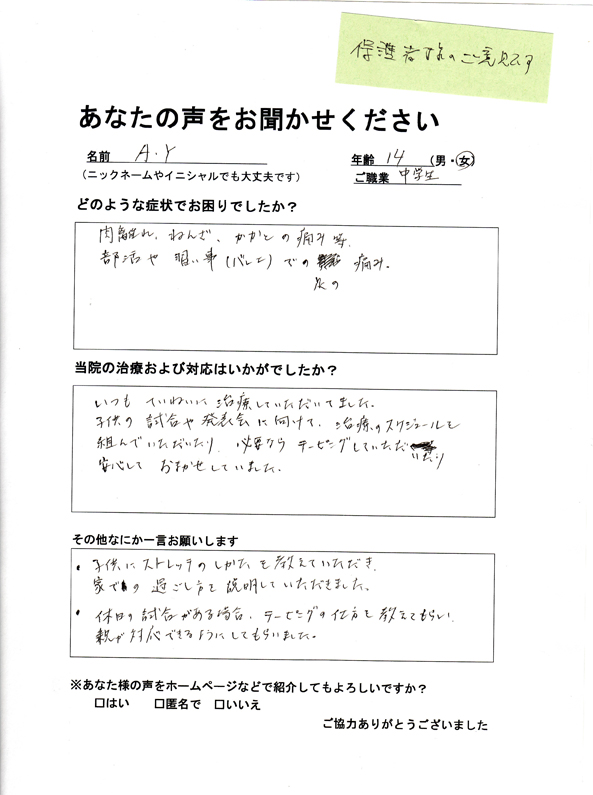 保護者様のご意見です
あなたの声をお聞かせください
名前 A.Y 年齢 14 (男・女)
(ニックネームやイニシャルでも大丈夫です) ご職業 中学生
どのような症状でお困りでしたか?
肉離れ、ねんざ、かかとの痛み等、
部活や習い事(バレエ)での 痛み。
次の
当院の治療および対応はいかがでしたか?
いつも ていねいに治療していただいてました。
子供の試合や発表会に向けて、治療のスケジュールを
組んでいただいたり、必要なら テーピングしていただいたり
安心して おまかせしていました。
その他なにか一言お願いします
・子供にストレッチのしかたを教えていただき、
家での過ごし方を説明していただきました。
・休日の試合がある場合、テーピングの仕方を教えてもらい、
親が対応できるようにしてもらいました。
※あなた様の声をホームページなどで紹介してもよろしいですか?
□はい □匿名で □いいえ
ご協力ありがとうございました